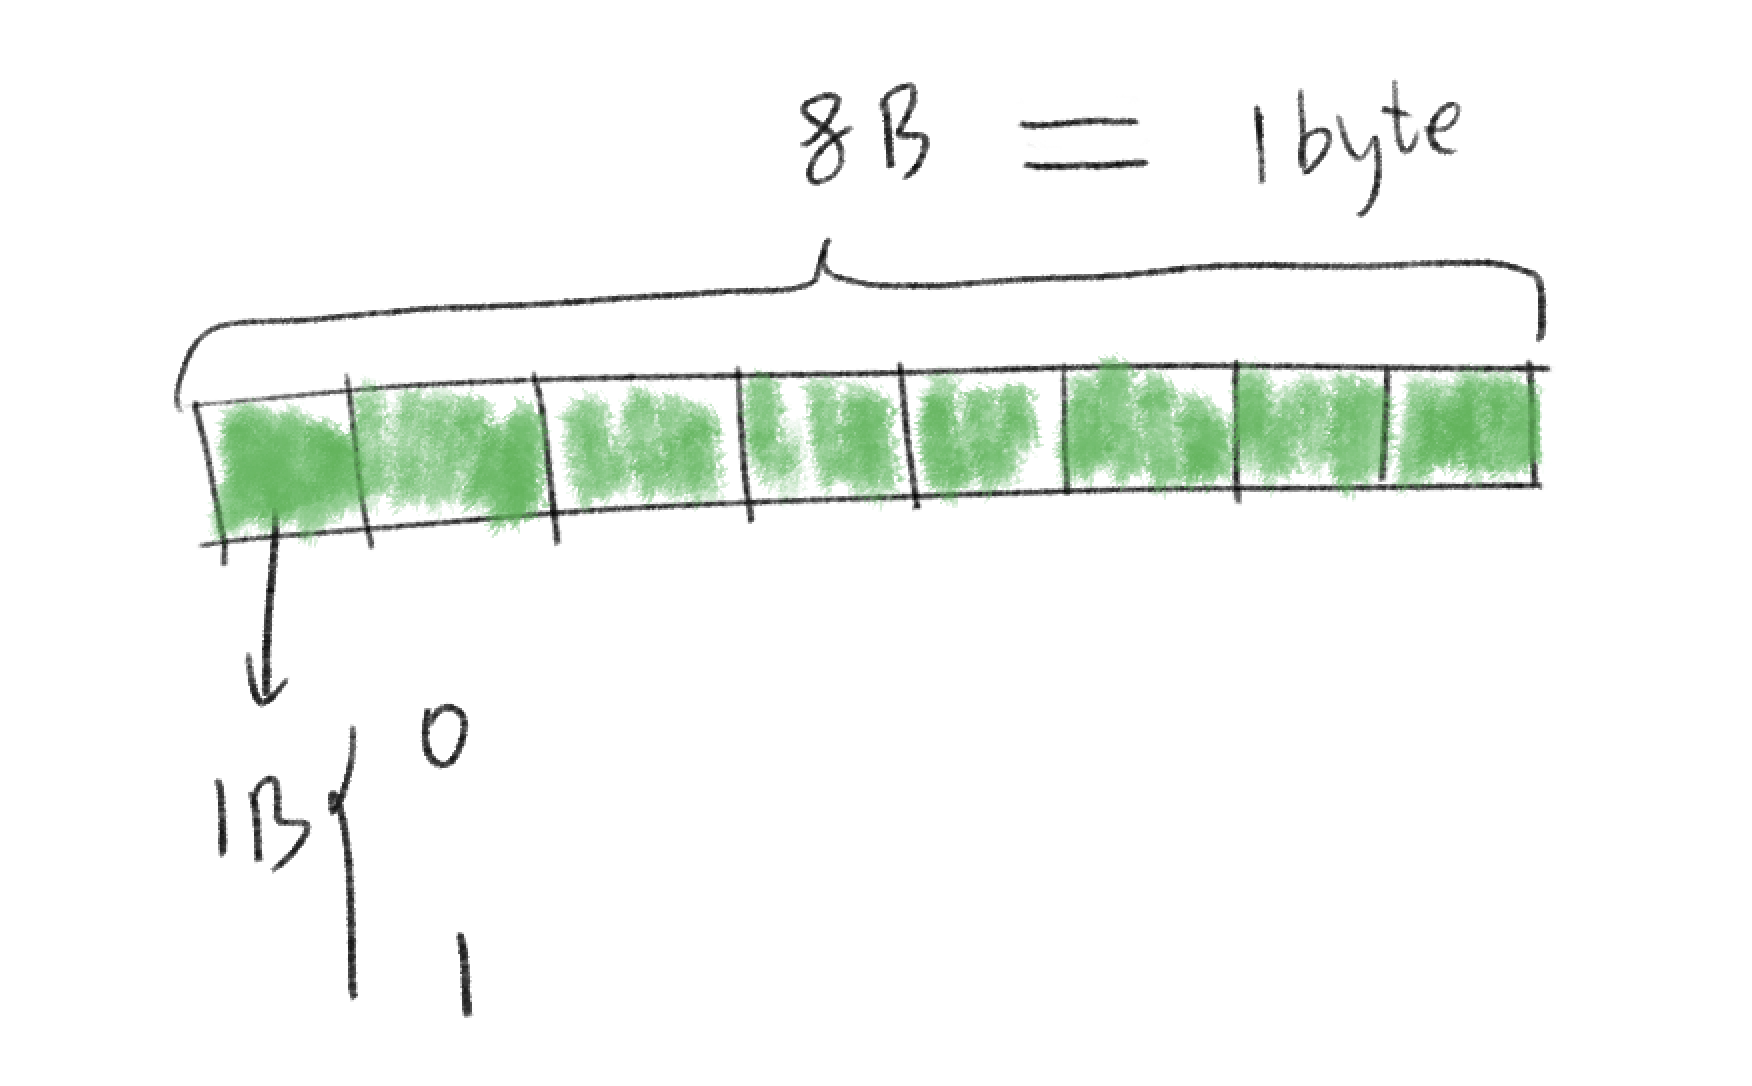 8B = 1byte
1B { 0
1